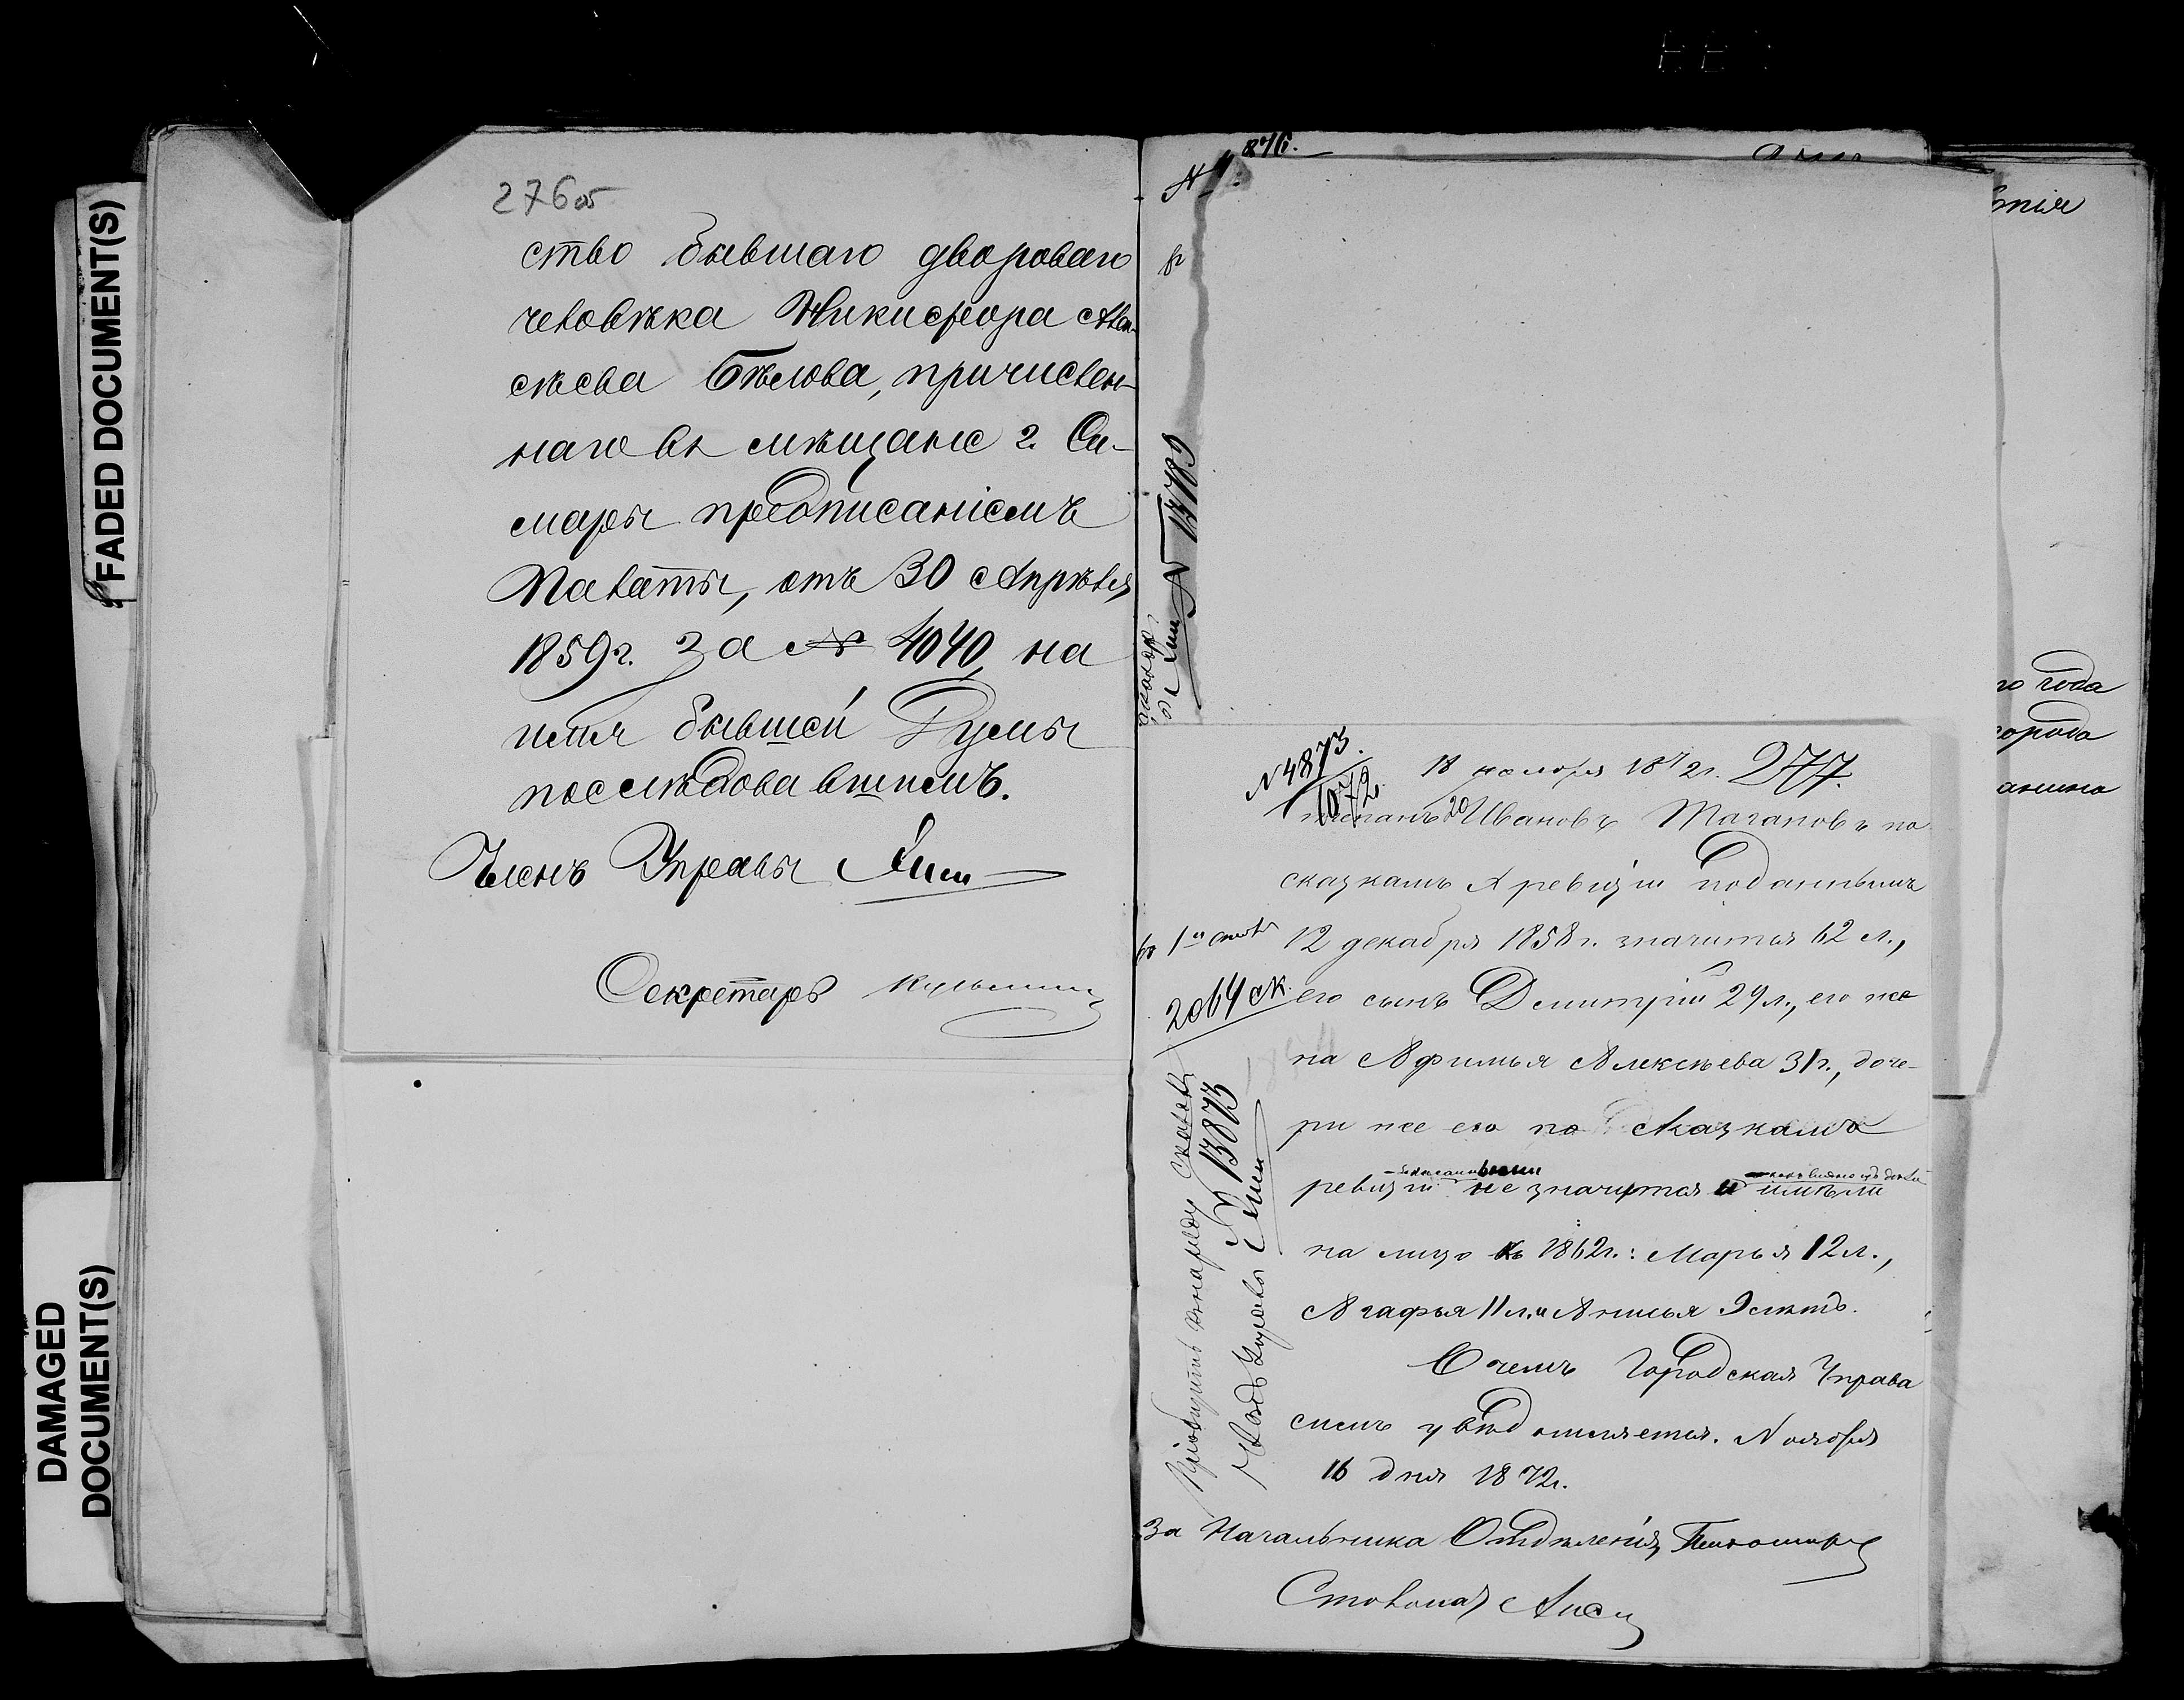 FADED DOCUMENT(S)
DAMAGED
DOCUMENT(S)
276 об
ство бывшаго дворовагo
человѣка Никифора Алек-
сѣева Бѣлова, причислен-
наго въ мѣщане г. Са-
мары предписаніемъ
Палаты, отъ 30 Апрѣля
1859 г. за № 4040, на
имя бывшей Думы
послѣдовавшимъ.
Членъ Управы
Секретарь
876.
№
№ 13789
№ 4873.
1072
18 ноября 1872 г. 277.
20 Ивановъ Тагановъ по
сказкамъ X ревизіи поданнымъ
12 декабря 1858 г. значится 62 л.,
во 1й столъ
2064 ск.
его сынъ Дмитрій 29 л., его же
на Афимья Алексѣева 31 г., доче-
ри же его по сказкамъ
ревизіи не значится и имѣли
на лицо къ 1862 г.: Марья 12 л.,
Агафья 11 л. и Анисья 9 лѣтъ.
О чемъ Городская Управа
симъ увѣдомляется. Ноября
16 дня 1872 г.
За Начальника Отдѣленія
Столонач
Пріобщить къ наряду сказокъ
№ 13875
Членъ Управы
го года
города